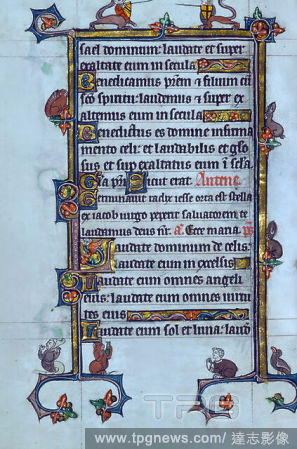 sael dominum: laudate et super
exaltate eum in secula
Benedicamus prem & filium cu
sco spiritu: laudemus & super ex
altemus eum in secula
Benedictus es domine in firma
mento celi: et laudabilis et glo
sus et sup exaltatus eum i secla
Gla pri Sicut erat. Antene
Germinauit radix iesse orta est stella
ex iacob uirgo peperit saluatorem te
laudamus deus nr. a. Ecce maria. ps
Laudate dominum de celis:
laudate eum in excelsis
Laudate eum omnes angeli
eius: laudate eum omnes uirtu
tes eius
Laudate eum sol et luna: laud
TPG
www.tpgnews.com/ 達志影像